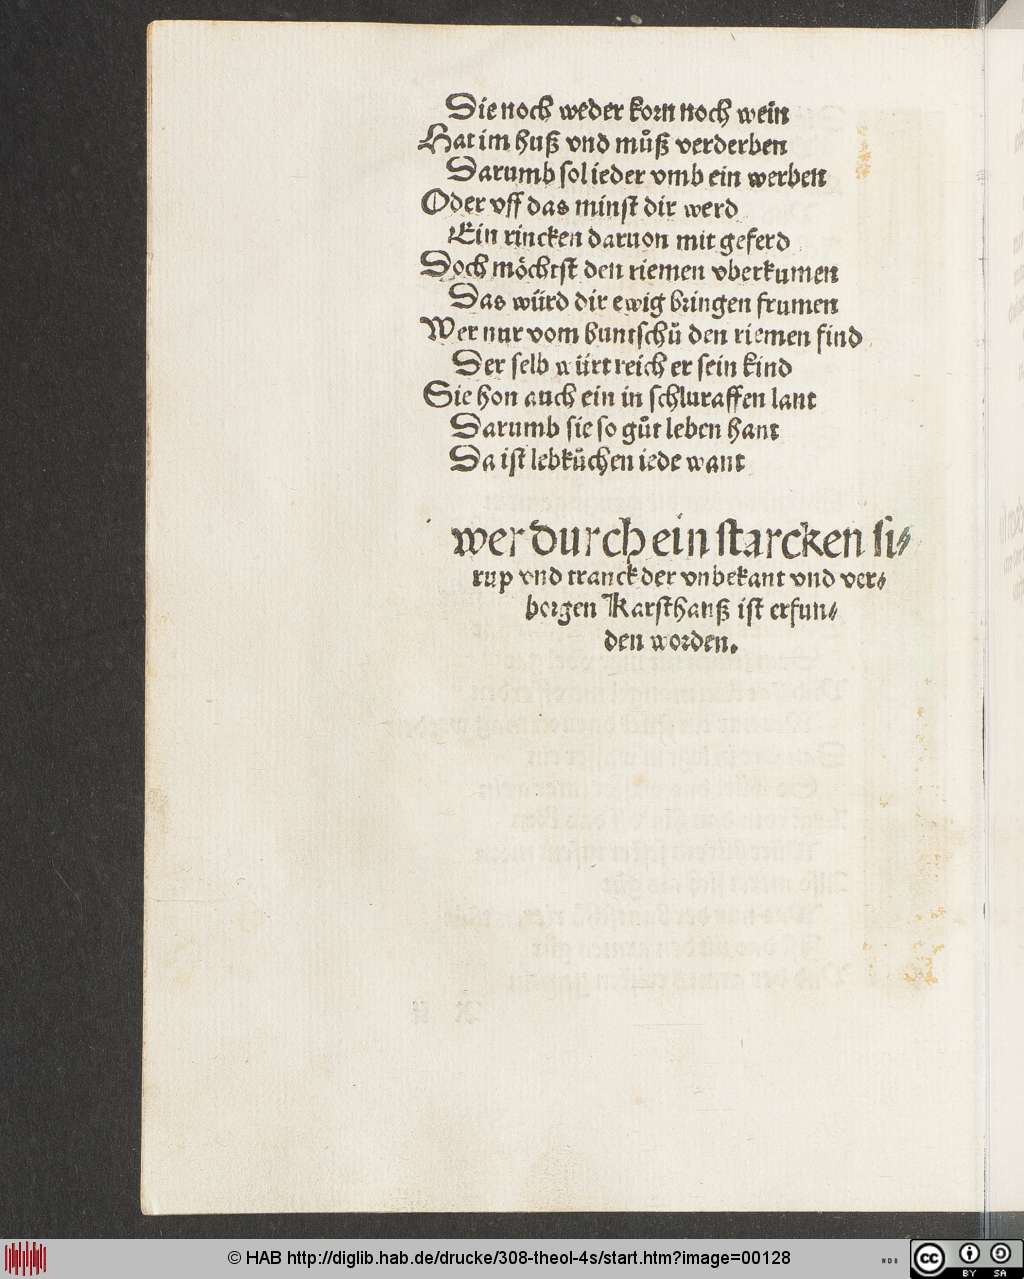 Die noch weder korn noch wein
Hat im huß vnd můß verderben
Darumb sol ieder vmb ein werben
Oder vff das minst dir werd
Ein rincken daruon mit geferd
Doch möchtst den riemen vberkumen
Das würd dir ewig bringen frumen
Wer nur vom buntschů den riemen find
Der selb würt reich er sein kind
Sie hon auch ein in schluraffen lant
Darumb sie so gůt leben hant
Da ist lebkůchen iede want
wer durch ein starcken si⸗
rup vnd tranck der vnbekant vnd ver⸗
borgen Karsthanß ist erfun⸗
den worden.
© HAB http://diglib.hab.de/drucke/308-theol-4s/start.htm?image=00128
WDB
cc BY SA